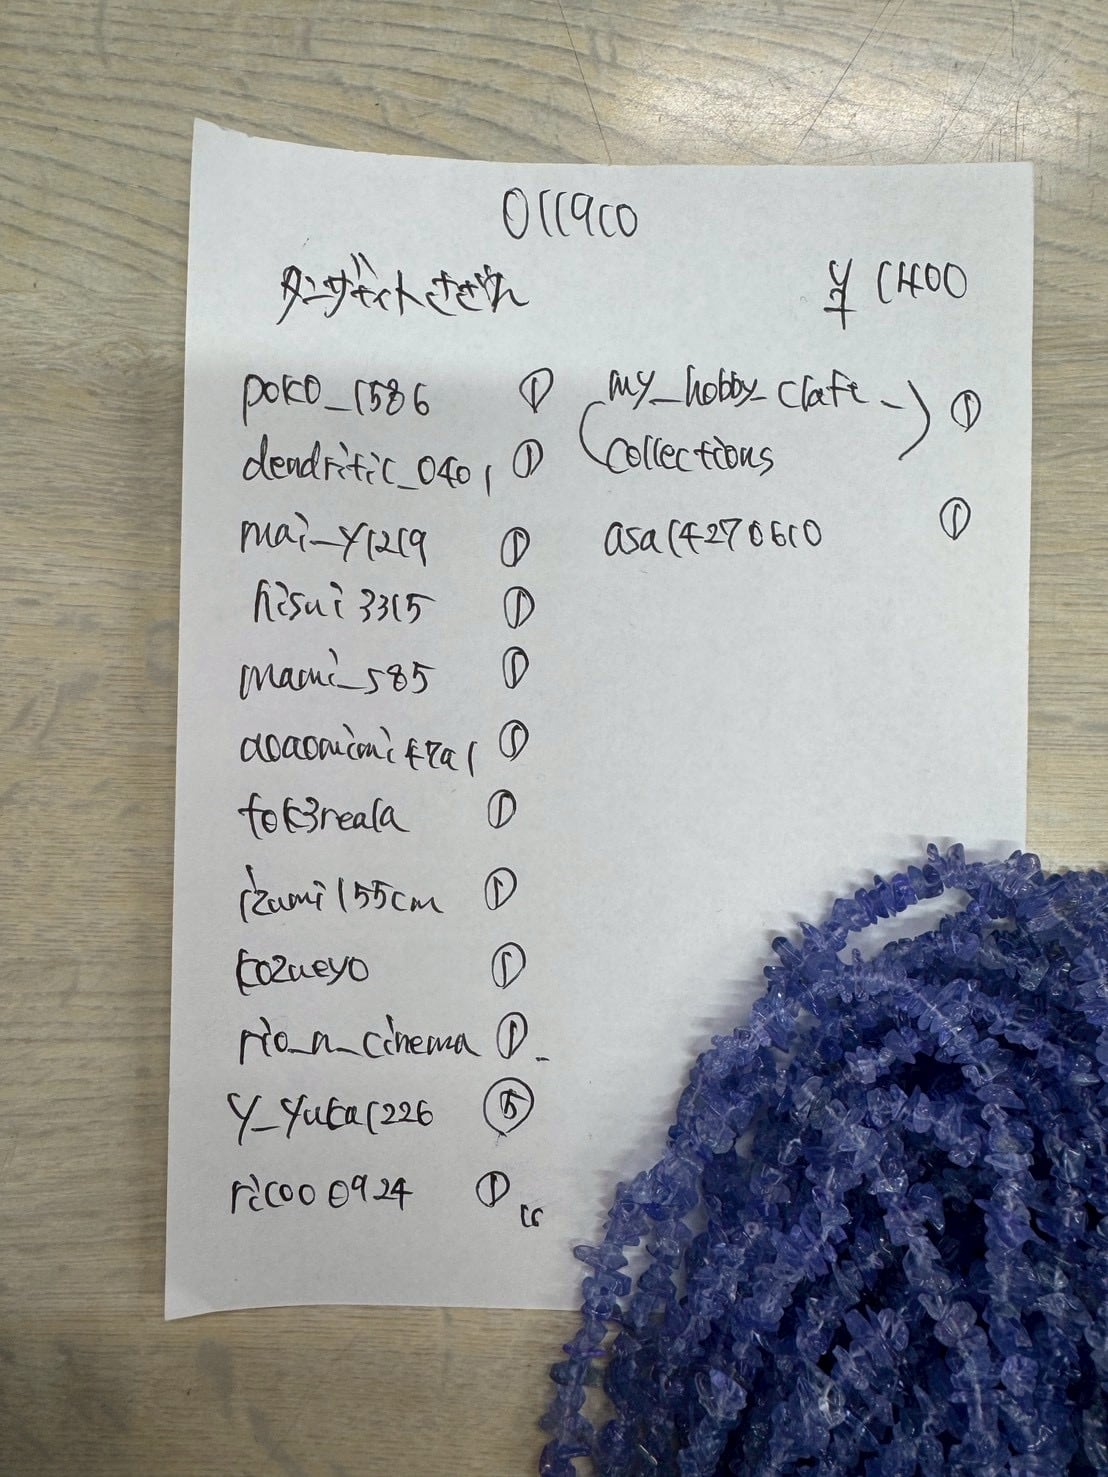 011910
タンザナイトさざれ
¥1400
poko_1586 ①
dendritic_0401 ①
mai_y1219 ①
hisui3315 ①
mami_585 ①
aoaomimi47a1 ①
tok3reala ①
izumi155cm ①
kozueyo ①
rio_n_cinema ①
y_yuka1226 ⑤
ricoo0924 ①
16
my_hobby_claft_
collections ①
asa14270610 ①